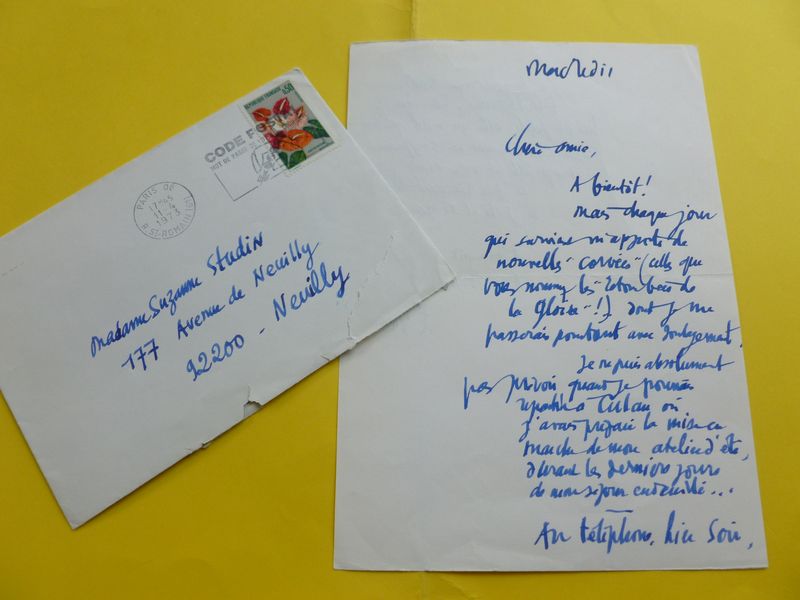 REPUBLIQUE FRANÇAISE
0,50
CODE POSTAL
MOT DE PASSE
PARIS 06
17H45
11-4
1973
R. ST-ROMAIN (6E)
Madame Suzanne Studin
177 Avenue de Neuilly
92200 - Neuilly
Mercredi 11
Chère amie,
A bientôt!
Mais chaque jour
qui survient m'apporte de
nouvelles "corvées" (celles que
vous nommez les "retombées de
la gloire"!) dont je me
passerais pourtant avec soulagement.
Je ne puis absolument
pas prévoir quand je pourrai
repartir à où
j'avais préparé la mise en
marche de mon atelier d'été,
durant les derniers jours
de mon séjour endeuillé...
Au téléphone, hier soir,